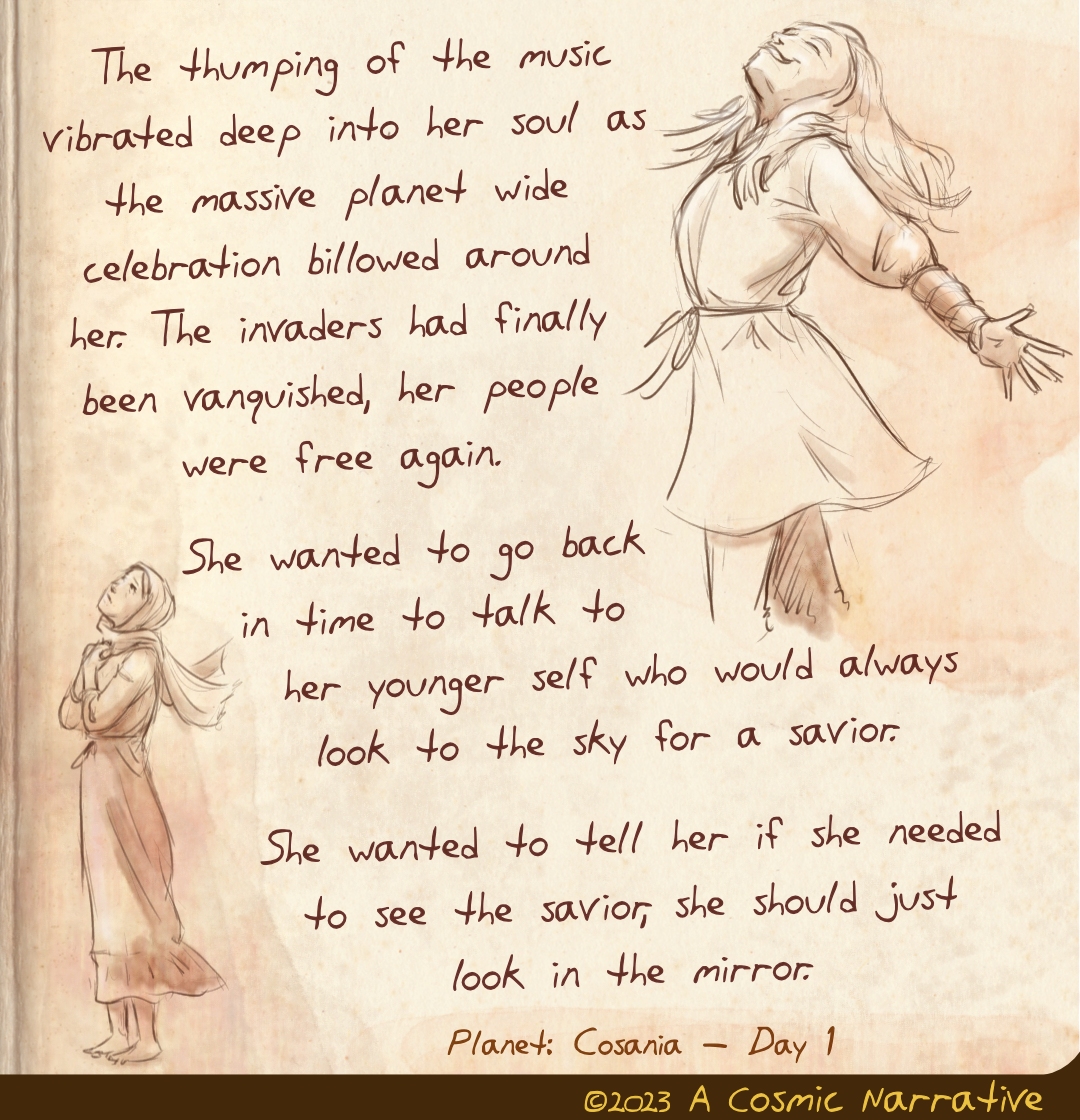 The thumping of the music
vibrated deep into her soul as
the massive planet wide
celebration billowed around
her. The invaders had finally
been vanquished, her people
were free again.
She wanted to go back
in time to talk to
her younger self who would always
look to the sky for a savior.
She wanted to tell her if she needed
to see the savior, she should just
look in the mirror.
Planet: Cosania – Day 1
©2023 A Cosmic Narrative